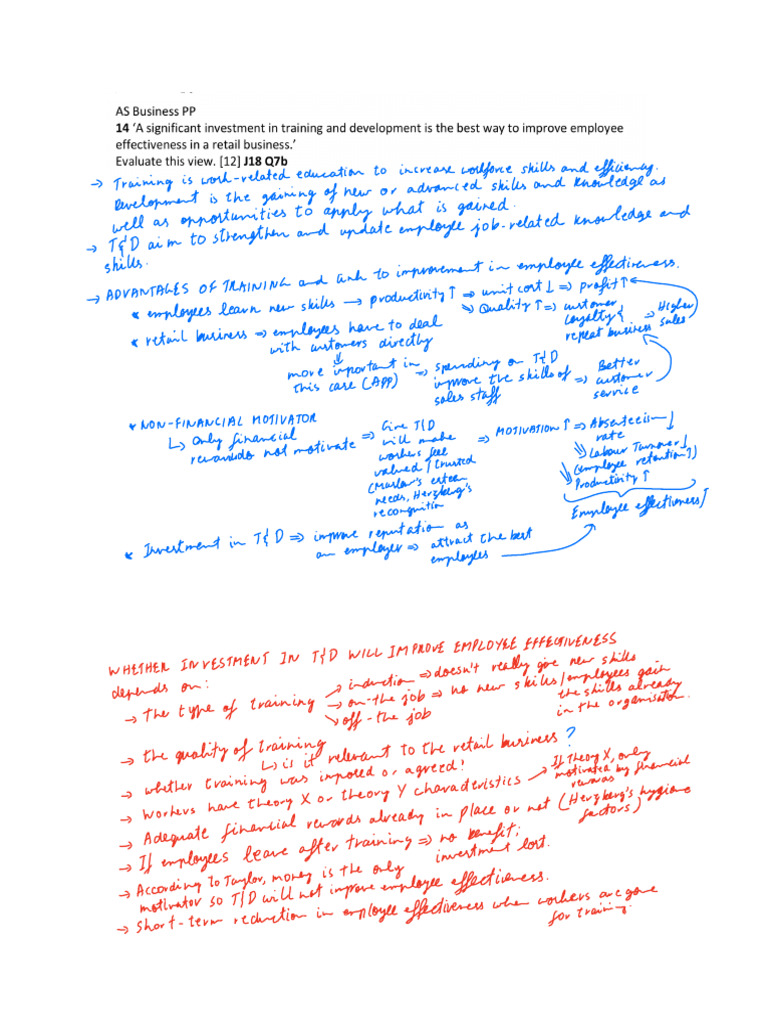 AS Business PP
14 ‘A significant investment in training and development is the best way to improve employee
effectiveness in a retail business.’
Evaluate this view. [12] J18 Q7b
→ Training is work-related education to increase workforce skills and efficiency.
Development is the gaining of new or advanced skills and knowledge as
well as opportunities to apply what is gained.
→ T&D aim to strengthen and update employee job-related knowledge and
skills.
→ ADVANTAGES OF TRAINING and link to improvement in employee effectiveness.
* employees learn new skills → productivity↑ ⇒ unit cost↓ ⇒ profit↑
⇒ Quality↑ ⇒ customer loyalty & repeat business ⇒ Higher sales
* retail business ⇒ employees have to deal
with customers directly
⇓
more important in
this case (APP)
⇒ spending on T&D
improve the skills of
sales staff
⇒ Better
customer
service
* NON-FINANCIAL MOTIVATOR
↳ Only financial
rewards do not motivate
⇒ Give T&D
will make
workers feel
valued / trusted
(Maslow's esteem
needs, Herzberg's
recognition
⇒ MOTIVATION↑ ⇒ Absenteeism↓
rate
Labour Turnover↓
(employee retention↑)
Productivity↑
Employee effectiveness↑
* Investment in T&D ⇒ improve reputation as
an employer ⇒ attract the best
employees
WHETHER INVESTMENT IN T&D WILL IMPROVE EMPLOYEE EFFECTIVENESS
depends on:
→ The type of training
→ induction ⇒ doesn't really give new skills
→ on-the job ⇒ no new skills/employees gain
the skills already
in the organisation.
→ off-the job
→ the quality of training
↳ is it relevant to the retail business?
→ whether training was imposed or agreed!
→ Workers have theory X or theory Y characteristics
→ If Theory X, only
motivated by financial
rewards
→ Adequate financial rewards already in place or not (Herzberg's hygiene
factors)
→ If employees leave after training ⇒ no benefit;
investment lost.
→ According to Taylor, money is the only
motivator so T&D will not improve employee effectiveness.
→ Short-term reduction in employee effectiveness when workers are gone
for training.